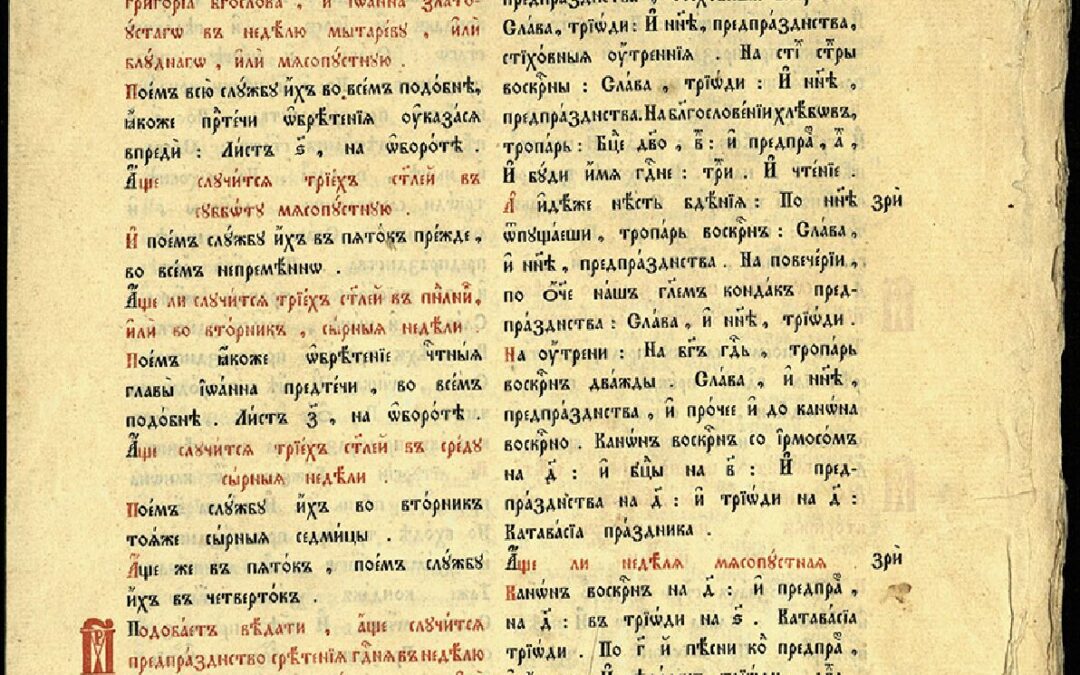 григо́рїа бг҃осло́ва , и҆ і҆ѡа́нна злато-
ѹ́стагѡ въ недѣ́лю мытаре́вꙋ , и҆лѝ
блꙋ́днагѡ , и҆́лѝ мѧсопꙋ́стнꙋю .
Пое́мъ всю̀ слꙋ́жбꙋ и҆́хъ во все́мъ подо́бнѣ,
ꙗ҆́коже прⷣте́чи ѡ҆брѣ́тенїѧ ᲂу҆каза́сѧ
впредѝ : Ли́стъ ѕ҃ , на ѡ҆боро́тѣ .
А҆́ще слꙋчи́тсѧ трїе́хъ ст҃ле́й въ
сꙋббѡ́тꙋ мѧсопꙋ́стнꙋю .
И҆ пое́мъ слꙋ́жбꙋ и҆́хъ въ пѧто́къ пре́жде ,
во все́мъ непреме́ннѡ .
А҆́ще ли слꙋчи́тсѧ трїе́хъ ст҃ле́й въ пн҃лⷩ҇и,
и҆́лѝ во вто́рникъ , сы́рныѧ недѣ́ли
Пое́мъ ꙗ҆́коже ѡ҆брѣ́тенїе чⷭ҇тны́ѧ
главы̀ і҆ѡа́нна предте́чи , во все́мъ
подо́бнѣ . Ли́стъ з҃ , на ѡ҆боро́тѣ .
А҆́ще слꙋчи́тсѧ трїе́хъ ст҃ле́й въ сре́дꙋ
сы́рныѧ недѣ́ли .
Пое́мъ слꙋ́жбꙋ и҆́хъ во вто́рникъ
тоѧ́же сы́рныѧ седми́цы .
А҆́ще же въ пѧто́къ , пое́мъ слꙋ́жбꙋ
и҆́хъ въ четверто́къ .
Подоба́етъ вѣ́дати , а҆́ще слꙋчи́тсѧ
предпра́зднство срѣ́тенїѧ гдⷭ҇нѧ въ недѣ́лю
Сла́ва, трїѡ́ди: И҆ нн҃ѣ, предпра́зднства,
стїхо́вныѧ ᲂу҆́треннїѧ . На стїⷯ стⷯры
воскрⷭ҇ны : Сла́ва , трїѡ́ди : И҆ нн҃ѣ ,
предпра́зднства. На блгⷭ҇ове́нїи хлѣ́бѡвъ,
тропа́рь : Бцⷣе дв҃о , в҃ : и҆ предпраⷥ , а҃ ,
И҆ бꙋ́ди и҆́мѧ гдⷭ҇не : трѝ . И҆ чте́нїе
А҆ и҆дѣ́же нѣ́сть бдѣ́нїѧ : По нн҃ѣ зрѝ
ѿпꙋща́еши , тропа́рь воскрⷭ҇нъ : Сла́ва ,
и҆ нн҃ѣ , предпра́зднства . На повече́рїи ,
по ѻ҆́че на́шъ гл҃емъ конда́къ пред-
пра́зднства : Сла́ва , и҆ нн҃ѣ , трїѡ́ди .
На ᲂу҆́трени : На бг҃ъ гдⷭ҇ь , тропа́рь
воскрⷭ҇нъ два́жды . Сла́ва , и҆ нн҃ѣ ,
предпра́зднства , и҆ про́чее и҆ до канѡ́на
воскрⷭ҇но . Канѡ́нъ воскрⷭ҇нъ со і҆рмосо́мъ
на д҃ : и҆ бцⷣы на в҃ : И҆ пред-
пра́зднⷭ҇тва на д҃ : и҆ трїѡ́ди на д҃ :
Катава́сїа пра́здника .
А҆́ще ли недѣ́лѧ мѧсопꙋ́стнаѧ зрѝ
Канѡ́нъ воскрⷭ҇нъ на д҃ : и҆ предпраⷥ
на д҃ : въ трїѡ́ди на ѕ҃ . Катава́сїа
трїѡ́ди . По г҃ й пѣ́сни коⷣ предпраⷥ ,